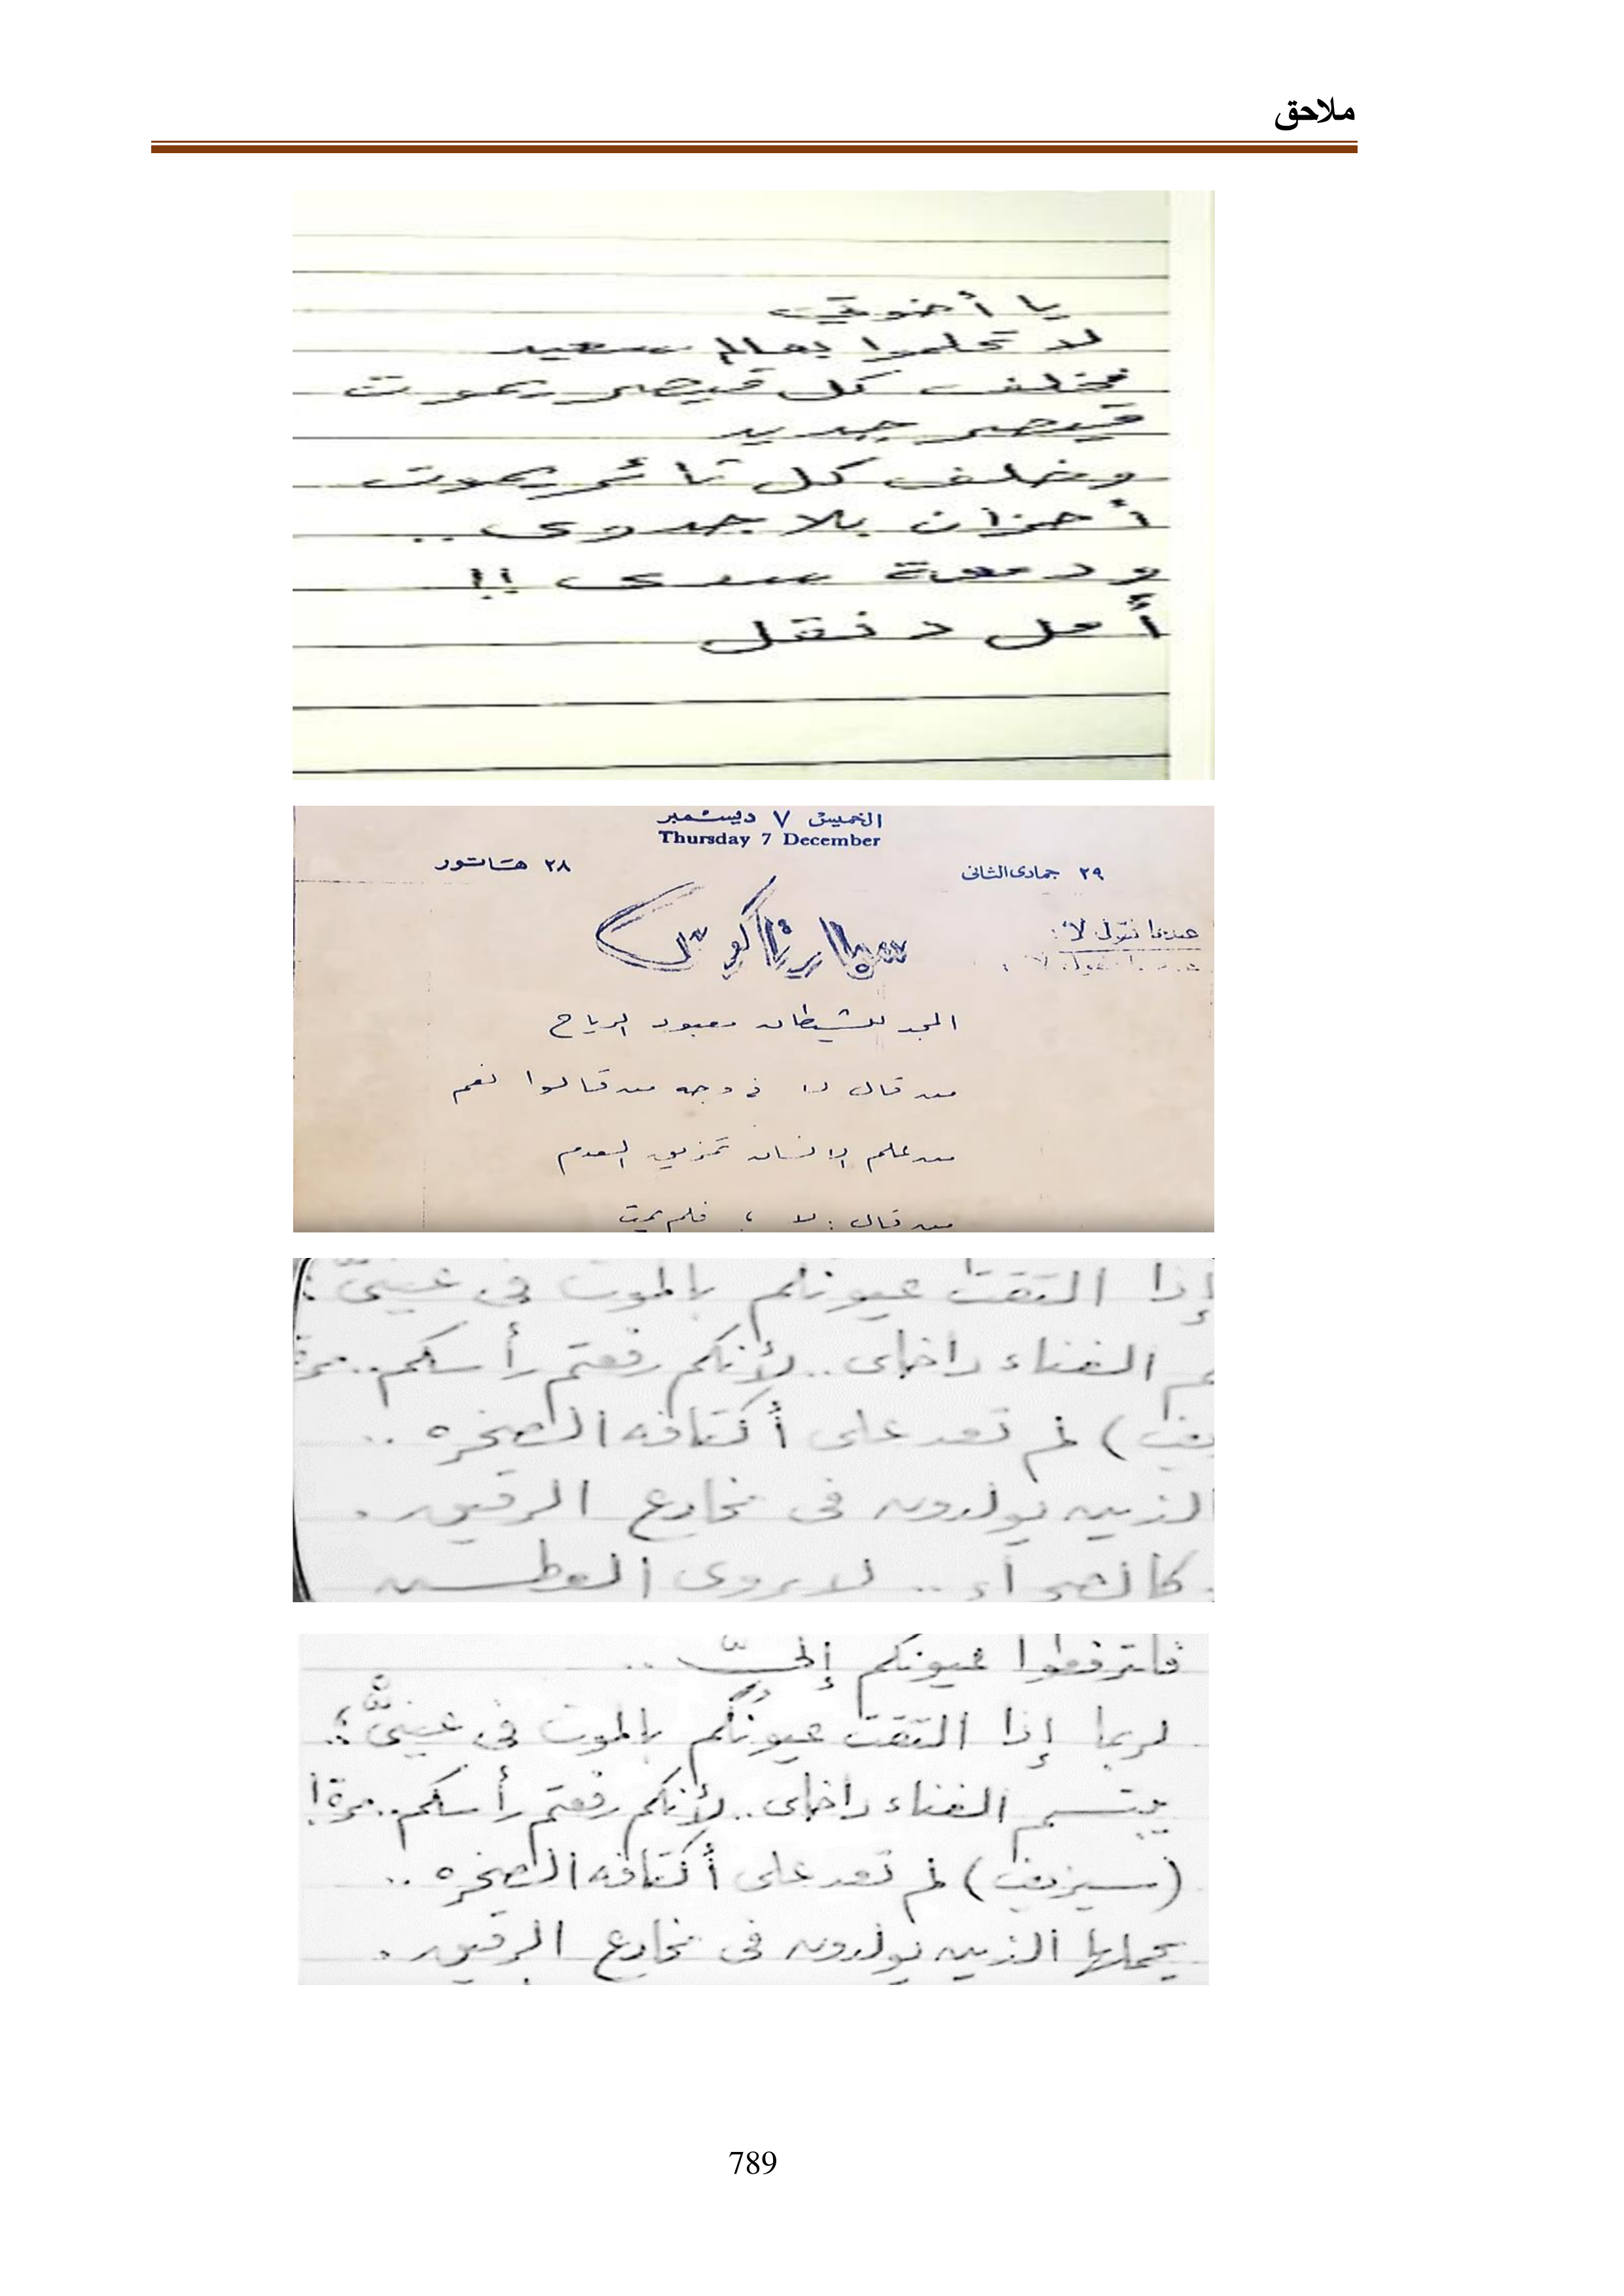 ملاحق
يا أخوتي
لا تحلموا بعالم سعيد
فخلف كل قيصر يموت
قيصر جديد
وخلف كل ثائر يموت
أحزان بلا جدوى ..
ودمعة سدى !!
أمل دنقل
الخميس ٧ ديسمبر
Thursday 7 December
٢٩ جمادى الثانى ٢٨ هاتور
سبارتاكوس
عندما نقول لا :
المجد للشيطان معبود الرياح
من قال لا فى وجه من قالوا نعم
من علم الانسان تمزيق العدم
من قال : لا ، فلم يمت
إذا التقت عيونكم بالموت فى عينىّ :
م الفناء داخلى .. لأنكم رفعتم رأسكم .. مرة
يف) لم تعد على أكتافه الصخره ..
الذين يولدون فى مخادع الرقيق .
كالصحراء .. لا يروى العطش
فلترفعوا عيونكم إلىّ ..
لربما إذا التقت عيونُكم بالموت فى عينىَّ ؛
يبتسم الفناء داخلى .. لأنكم رفعتم رأسكم .. مرة !
(سيزيف) لم تعد على أكتافه الصخره ..
يحملها الذين يولدون فى مخادع الرقيق .
789